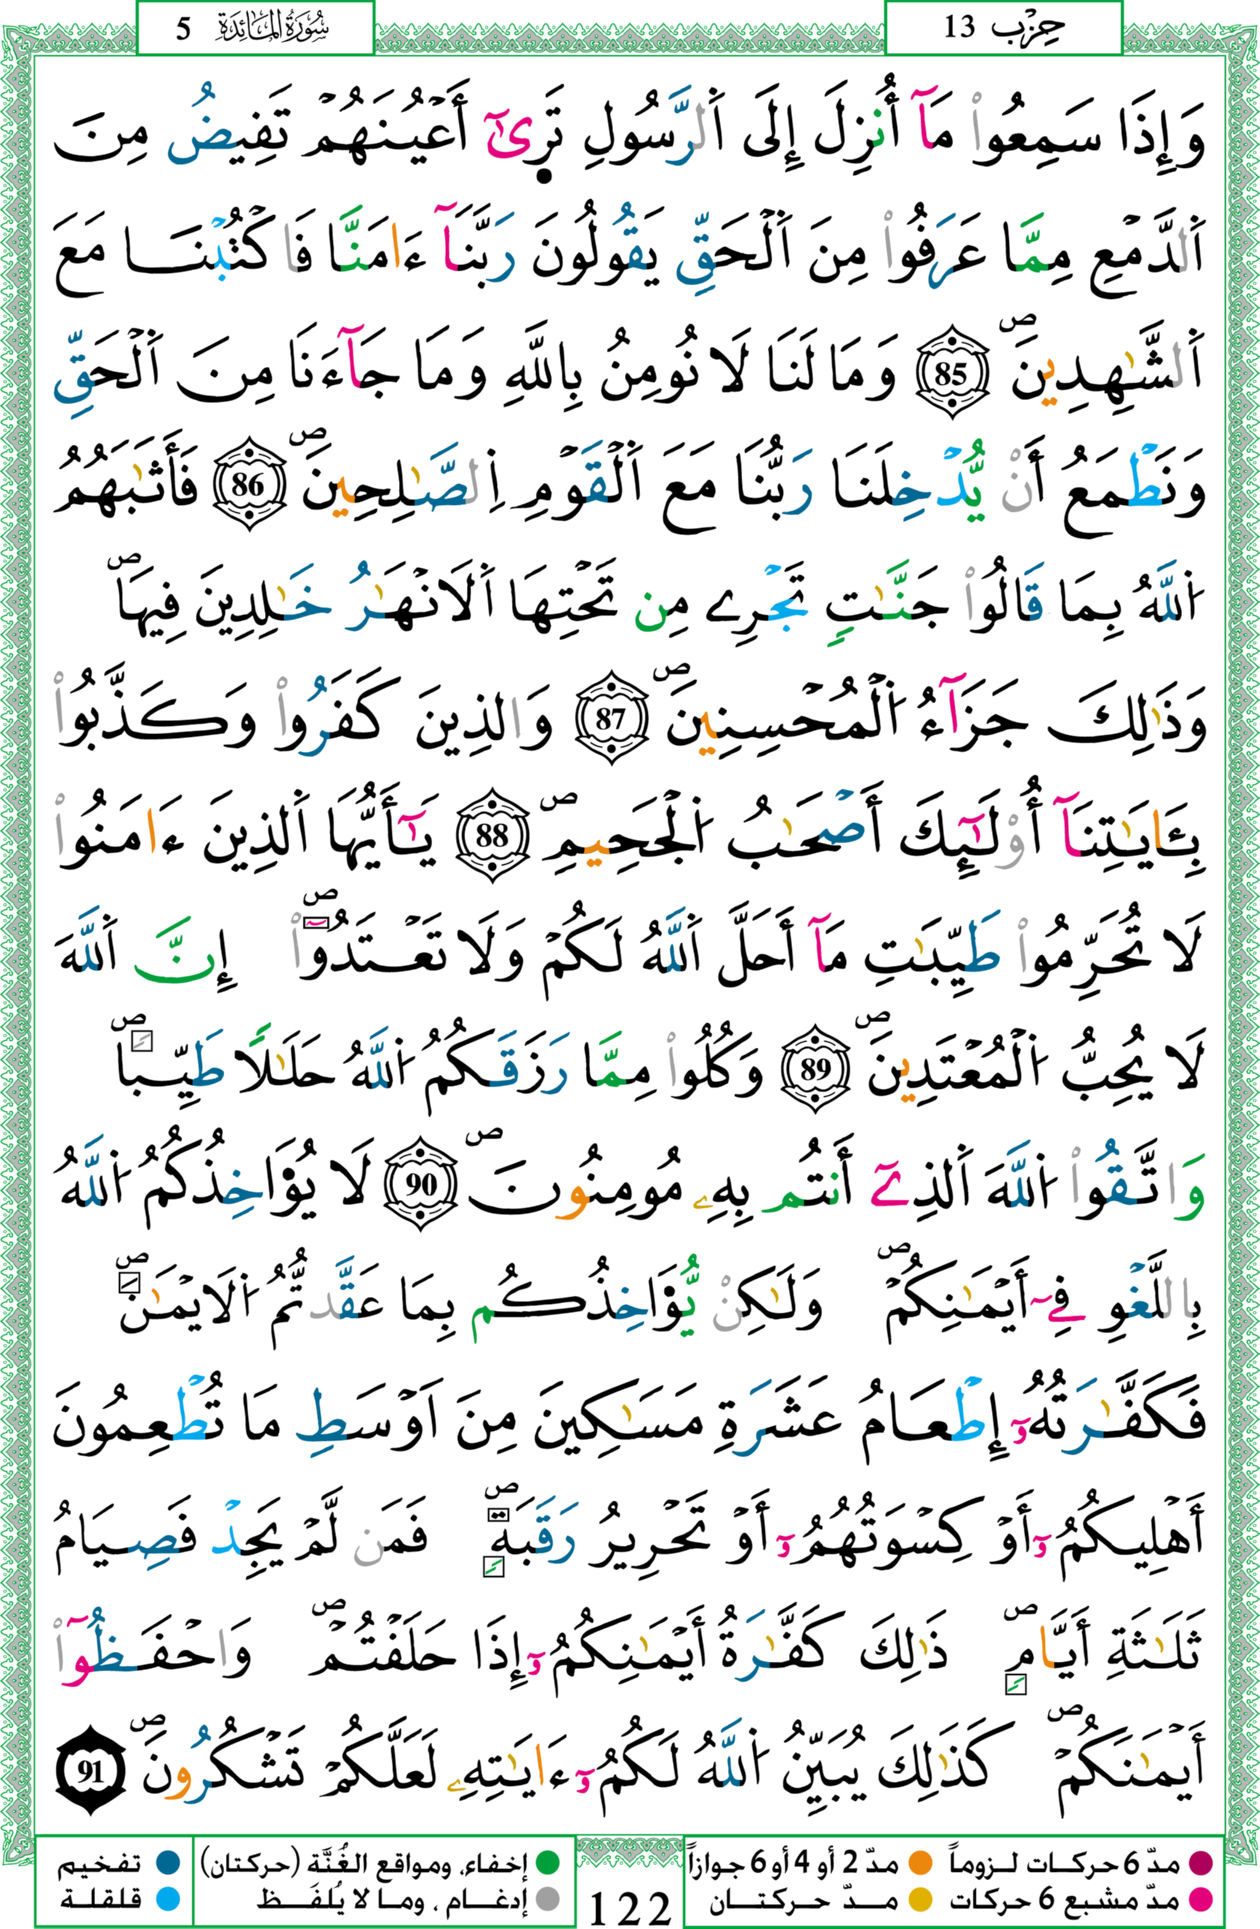 حِزْب 13
سُورَةُ المَائِدَة 5
وَإِذَا سَمِعُواْ مَآ أُنزِلَ إِلَى اَلرَّسُولِ تَرِىٰٓ أَعْيُنَهُمْ تَفِيضُ مِنَ
اَلدَّمْعِ مِمَّا عَرَفُواْ مِنَ اَلْحَقِّ يَقُولُونَ رَبَّنَآ ءَامَنَّا فَاكْتُبْنَا مَعَ
اَلشَّٰهِدِينَۖ 85 وَمَا لَنَا لَا نُومِنُ بِاللَّهِ وَمَا جَآءَنَا مِنَ اَلْحَقِّ
وَنَطْمَعُ أَنْ يُّدْخِلَنَا رَبُّنَا مَعَ اَلْقَوْمِ اِلصَّٰلِحِينَۖ 86 فَأَثَٰبَهُمُ
اُللَّهُ بِمَا قَالُواْ جَنَّٰتٖ تَجْرِے مِن تَحْتِهَا اَلَانْهَٰرُ خَٰلِدِينَ فِيهَاۖ
وَذَٰلِكَ جَزَآءُ اُلْمُحْسِنِينَۖ 87 وَالذِينَ كَفَرُواْ وَكَذَّبُواْ
بِـَٔايَٰتِنَآ أُوْلَٰٓئِكَ أَصْحَٰبُ اُلْجَحِيمِۖ 88 يَٰٓأَيُّهَا اَلذِينَ ءَامَنُواْ
لَا تُحَرِّمُواْ طَيِّبَٰتِ مَآ أَحَلَّ اَللَّهُ لَكُمْ وَلَا تَعْتَدُوٓاْۖ إِنَّ اَللَّهَ
لَا يُحِبُّ اُلْمُعْتَدِينَۖ 89 وَكُلُواْ مِمَّا رَزَقَكُمُ اُللَّهُ حَلَٰلاٗ طَيِّباٗۖ
وَاتَّقُواْ اُللَّهَ اَلذِےٓ أَنتُم بِهِۦ مُومِنُونَۖ 90 لَا يُؤَاخِذُكُمُ اُللَّهُ
بِاللَّغْوِ فِےٓ أَيْمَٰنِكُمْۖ وَلَٰكِنْ يُّؤَاخِذُكُم بِمَا عَقَّدتُّمُ اُلَايْمَٰنَۖ
فَكَفَّٰرَتُهُۥٓ إِطْعَامُ عَشَرَةِ مَسَٰكِينَ مِنَ اَوْسَطِ مَا تُطْعِمُونَ
أَهْلِيكُمُۥٓ أَوْ كِسْوَتُهُمُۥٓ أَوْ تَحْرِيرُ رَقَبَةٖۖ فَمَن لَّمْ يَجِدْ فَصِيَامُ
ثَلَٰثَةِ أَيَّامٖۖ ذَٰلِكَ كَفَّٰرَةُ أَيْمَٰنِكُمُۥٓ إِذَا حَلَفْتُمْۖ وَاحْفَظُوٓاْ
أَيْمَٰنَكُمْۖ كَذَٰلِكَ يُبَيِّنُ اُللَّهُ لَكُمُۥٓ ءَايَٰتِهِۦ لَعَلَّكُمْ تَشْكُرُونَۖ 91
مدّ 6 حركات لـزوماً مدّ 2 أو 4 أو 6 جوازاً
مدّ مشبع 6 حركات مـدّ حـركتـان
122
إخفاء، ومواقع الغُنَّة (حركتان) تفخيم
إدغـام ، ومـا لا يُلفَـظ قلقلة